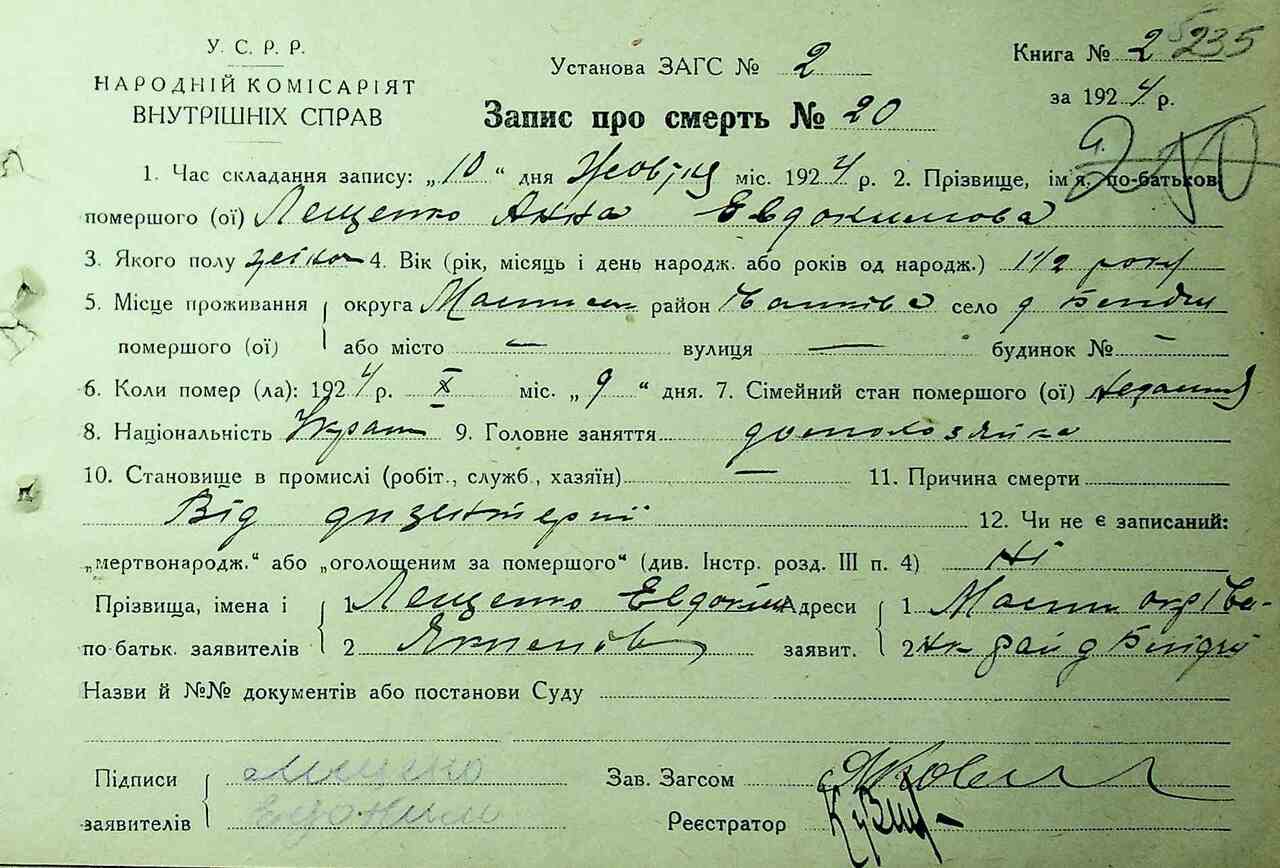 У. С. Р. Р.
НАРОДНІЙ КОМІСАРІЯТ
ВНУТРІШНІХ СПРАВ
Установа ЗАГС № 2
Запис про смерть № 20
Книга № 2 235
за 1924 р.
1. Час складання запису: „10“ дня Жовтня міс. 1924 р. 2. Прізвище, ім'я, по-батькові
помершого (ої) Лещенко Анна Евдокимова
3. Якого полу 4. Вік (рік, місяць і день народж. або років од народж.) 1 1/2 року
5. Місце проживання округа район село
помершого (ої) або місто — вулиця — будинок № —
6. Коли помер (ла): 1924 р. X міс. „9“ дня. 7. Сімейний стан помершого (ої)
8. Національність Украї 9. Головне заняття домохозяйка
10. Становище в промислі (робіт., служб., хазяїн) — 11. Причина смерти
Від дизентерії 12. Чи не є записаний:
„мертвонародж.“ або „оголошеним за помершого“ (див. Інстр. розд. III п. 4) Ні
Прізвища, імена і 1 Лещенко Евдоким Адреси 1
по-батьк. заявителів 2 заявит. 2
Назви й №№ документів або постанови Суду
Підписи Лещенко Зав. Загсом
заявителів Евдоким Реєстратор